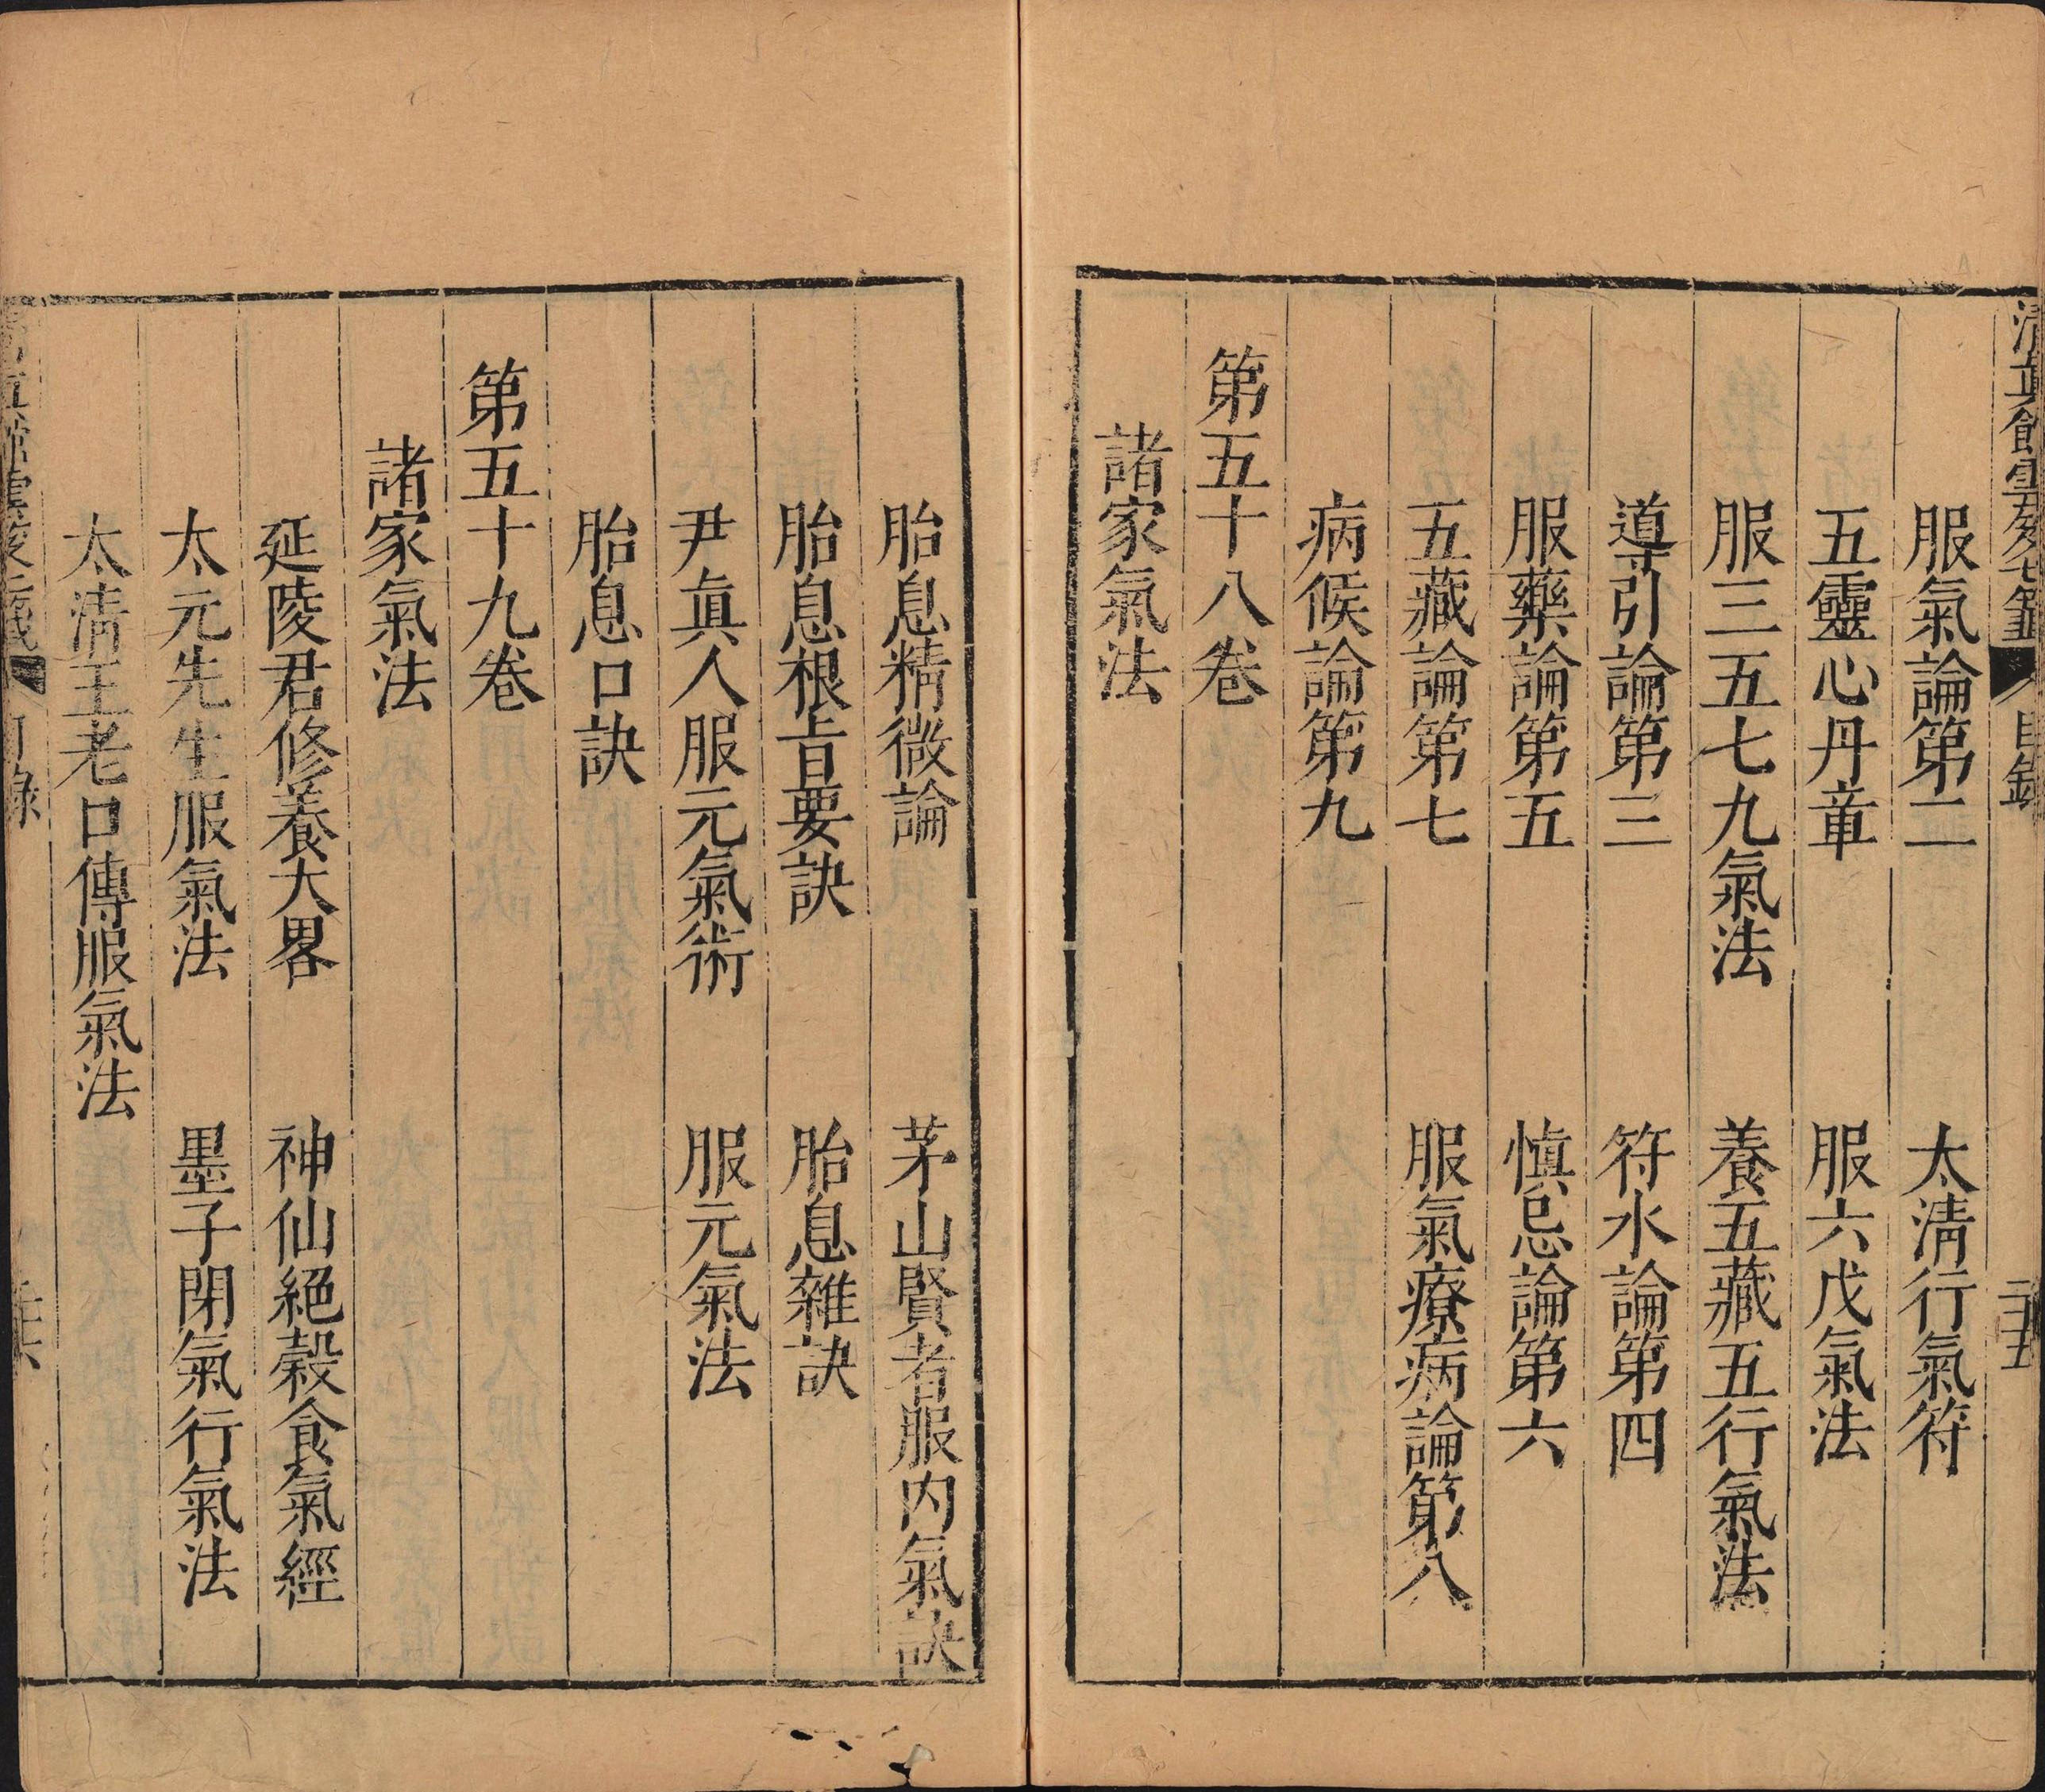 服氣論第二　太淸行氣符
五靈心丹章　服六戊氣法
服三五七九氣法　養五藏五行氣法
導引論第三　符水論第四
服藥論第五　慎忌論第六
五藏論第七　服氣療病論第八
病候論第九
第五十八卷
諸家氣法
胎息精微論　茅山賢者服内氣訣
胎息根旨要訣　胎息雜訣
尹眞人服元氣術　服元氣法
胎息口訣
第五十九卷
諸家氣法
延陵君修養大畧　神仙絕穀食氣經
太元先生服氣法　墨子閉氣行氣法
太淸王老口傳服氣法